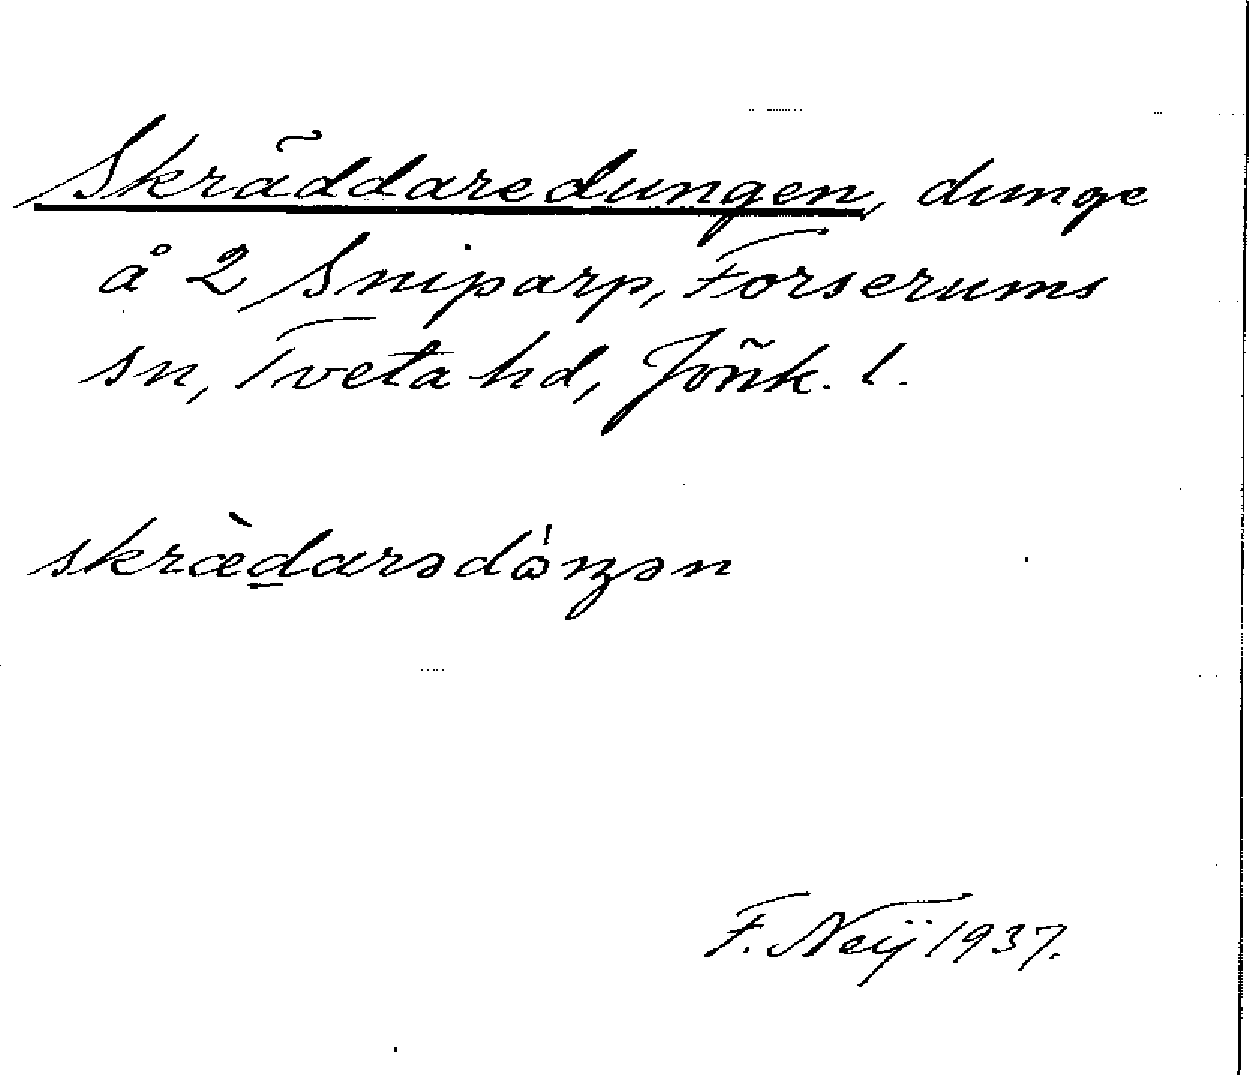 Skräddaredungen, dunge
å 2 Sniparp, Forserums
sn, Tveta hd, Jönk. l.
skræ̀d̲arədɷ́nʒən
F. Neij 1937.